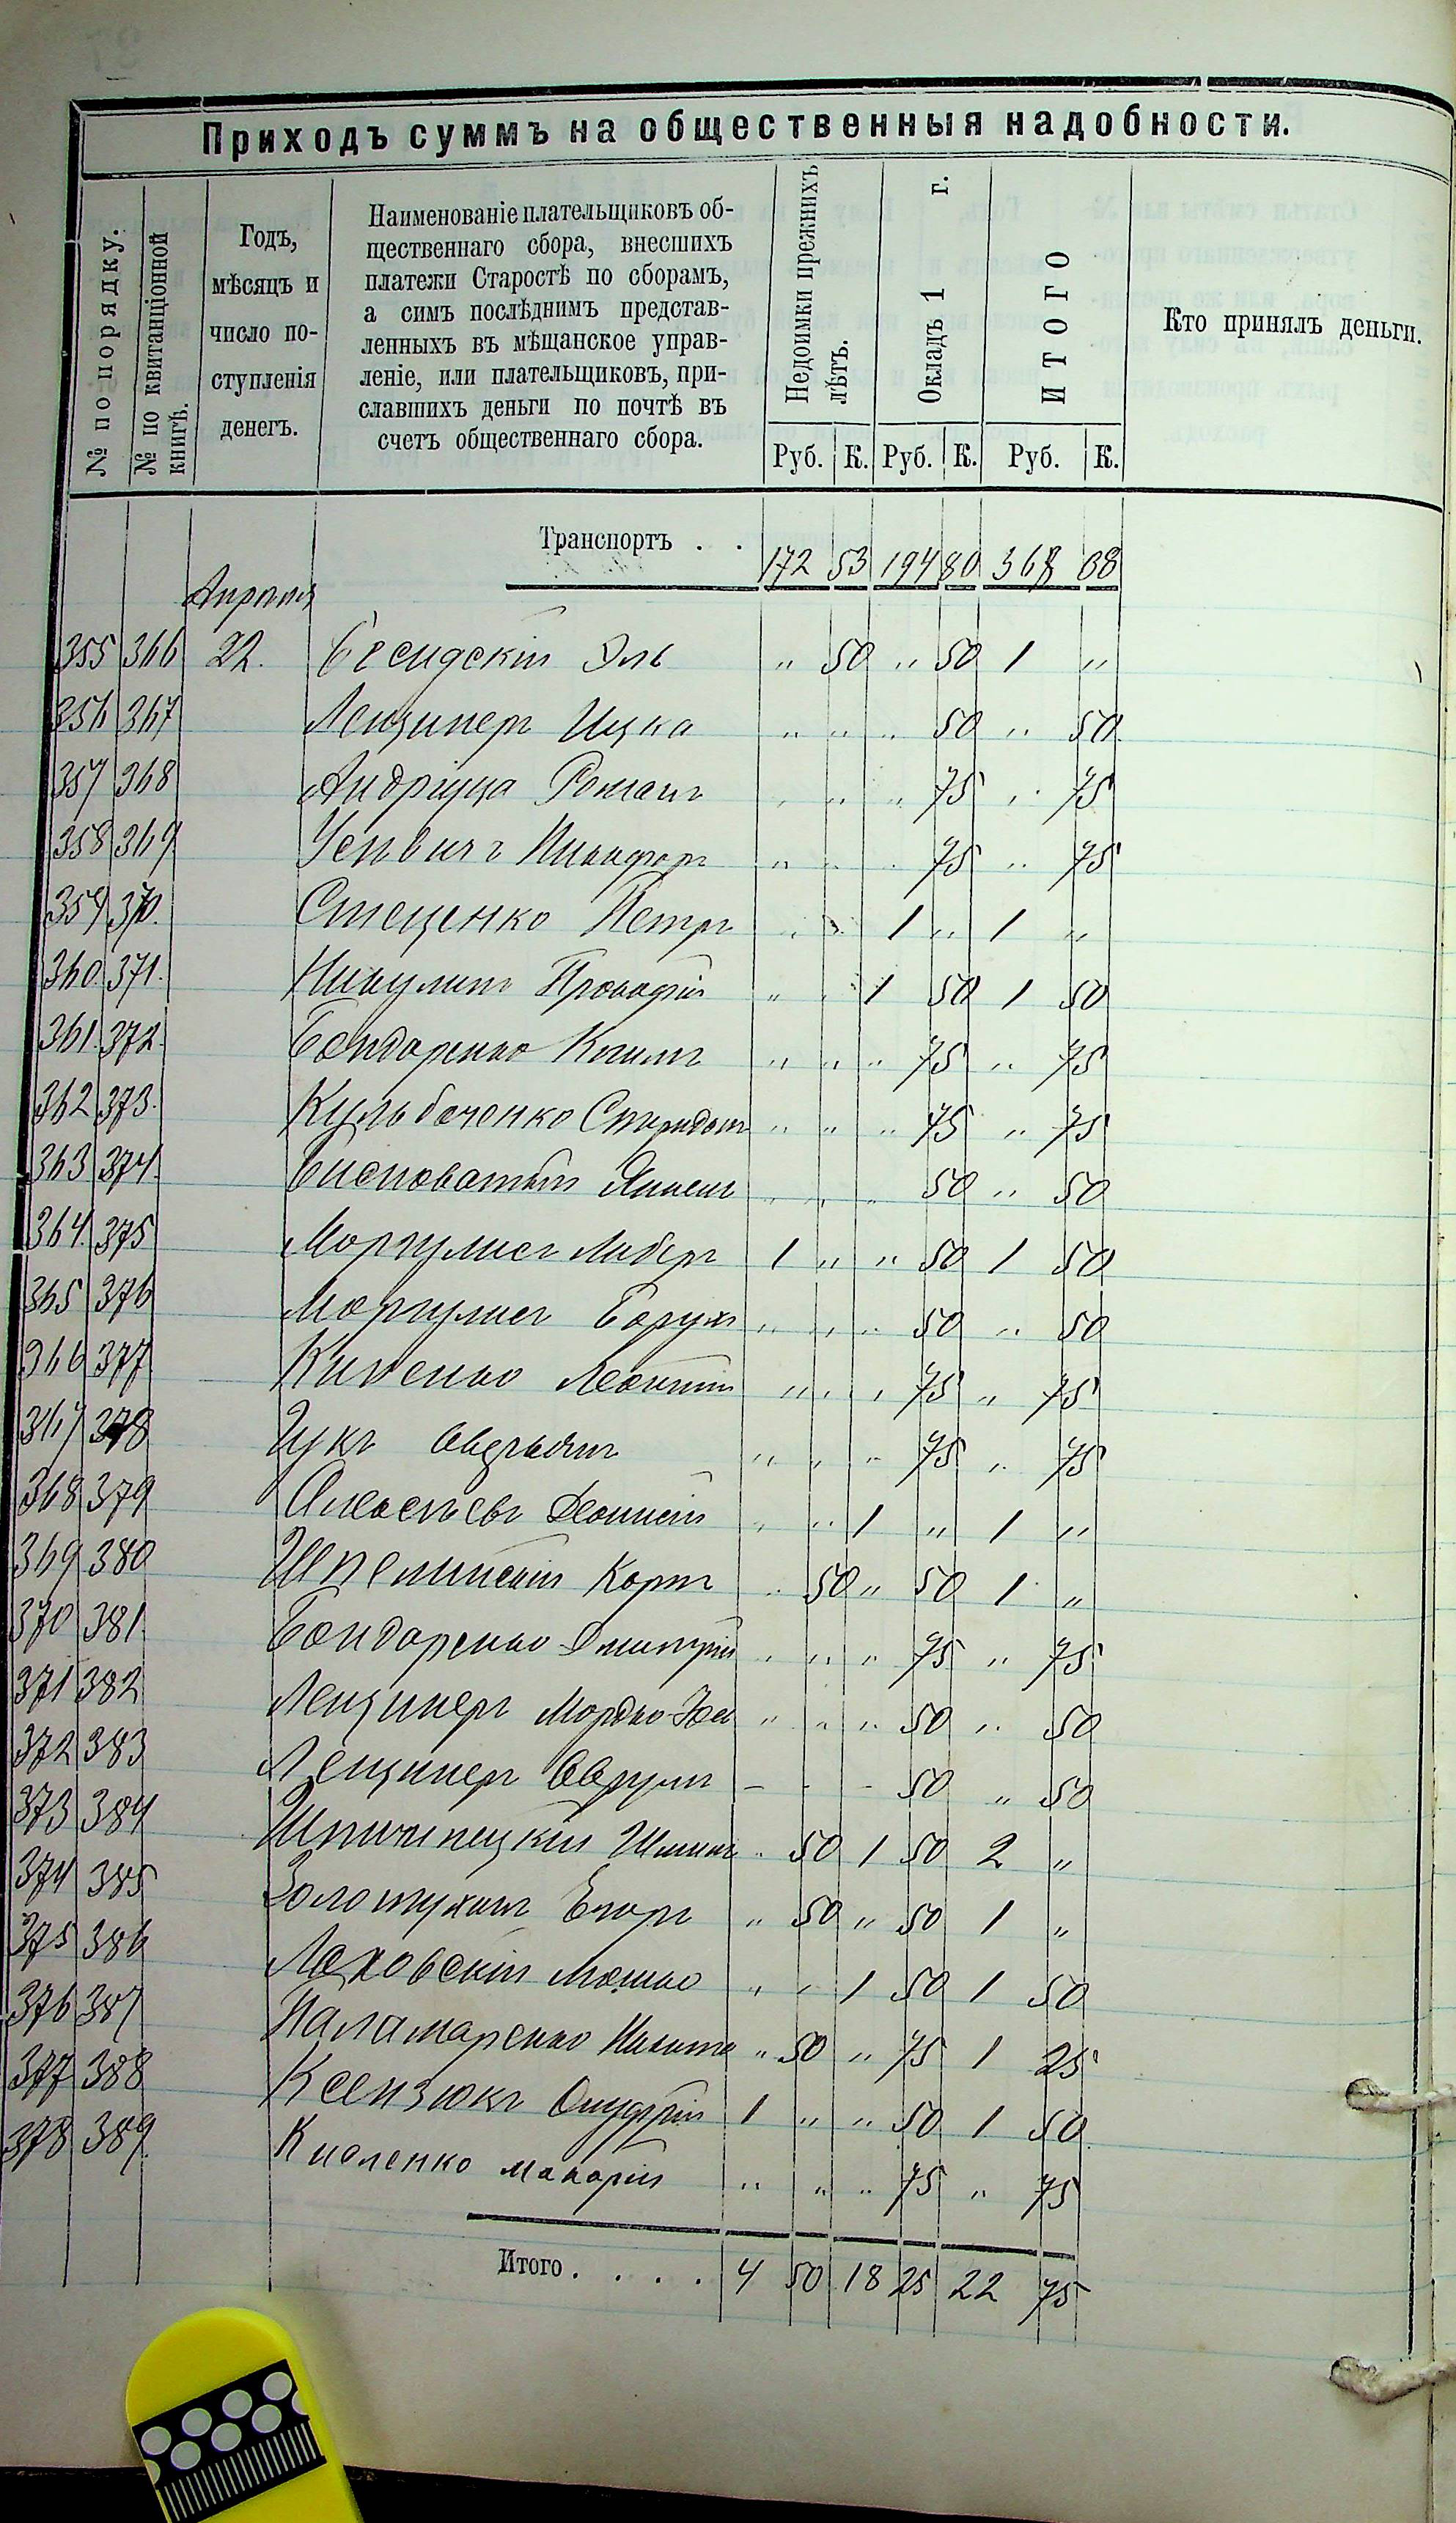 Приходъ суммъ на общественныя надобности.
№ по порядку.
№ по квитанціонной книгѣ.
Годъ, мѣсяцъ и число поступленія денегъ.
Наименованіе плательщиковъ об-
щественнаго сбора, внесшихъ
платежи Старостѣ по сборамъ,
а симъ послѣднимъ представ-
ленныхъ въ мѣщанское управ-
леніе, или плательщиковъ, при-
славшихъ деньги по почтѣ въ
счетъ общественнаго сбора.
Недоимки прежнихъ лѣтъ.
Окладъ 1 г.
ИТОГО
Кто принялъ деньги.
Руб. К. Руб. К. Руб. К.
Транспортъ . . 172 53 194 80 368 08
Апрѣля
355 366 22. Бесидскій Эль " 50 " 50 1 "
356 367 Ицка " " " 50 " 50
357 368 Андріуца Романъ " " " 75 " 75
358 369 Никифоръ " " " 75 " 75
359 370. Стеценко Петръ " " 1 " 1 "
360. 371. Никулинъ Прокофій " " 1 50 1 50
361. 372. Бондаренко " " " 75 " 75
362 373. Кульбаченко Спиридонъ " " " 75 " 75
363 374. " " " 50 " 50
364. 375 Моргулисъ Либеръ 1 " " 50 1 50
365 376 Моргулисъ Борухъ " " " 50 " 50
366 377 Леонтій " " " 75 " 75
367 378 Цукъ " " " 75 " 75
368 379 " " 1 " 1 "
369 380 " 50 " 50 1 "
370 381. Бондаренко Дмитрій " " " 75 " 75
371 382 Мордко " " " 50 " 50
372 383 Аврумъ – - - 50 " 50
373 384 " 50 1 50 2 "
374 385 Золотухинъ Егоръ " 50 " 50 1 "
375 386 Ляховскій Мошко " " 1 50 1 50
376 387 Паламаренко Никита " 50 " 75 1 25
377 388 Ксензюкъ Онуфрій 1 " " 50 1 50
378 389. Макарій " " " 75 " 75
Итого . . . . 4 50 18 25 22 75